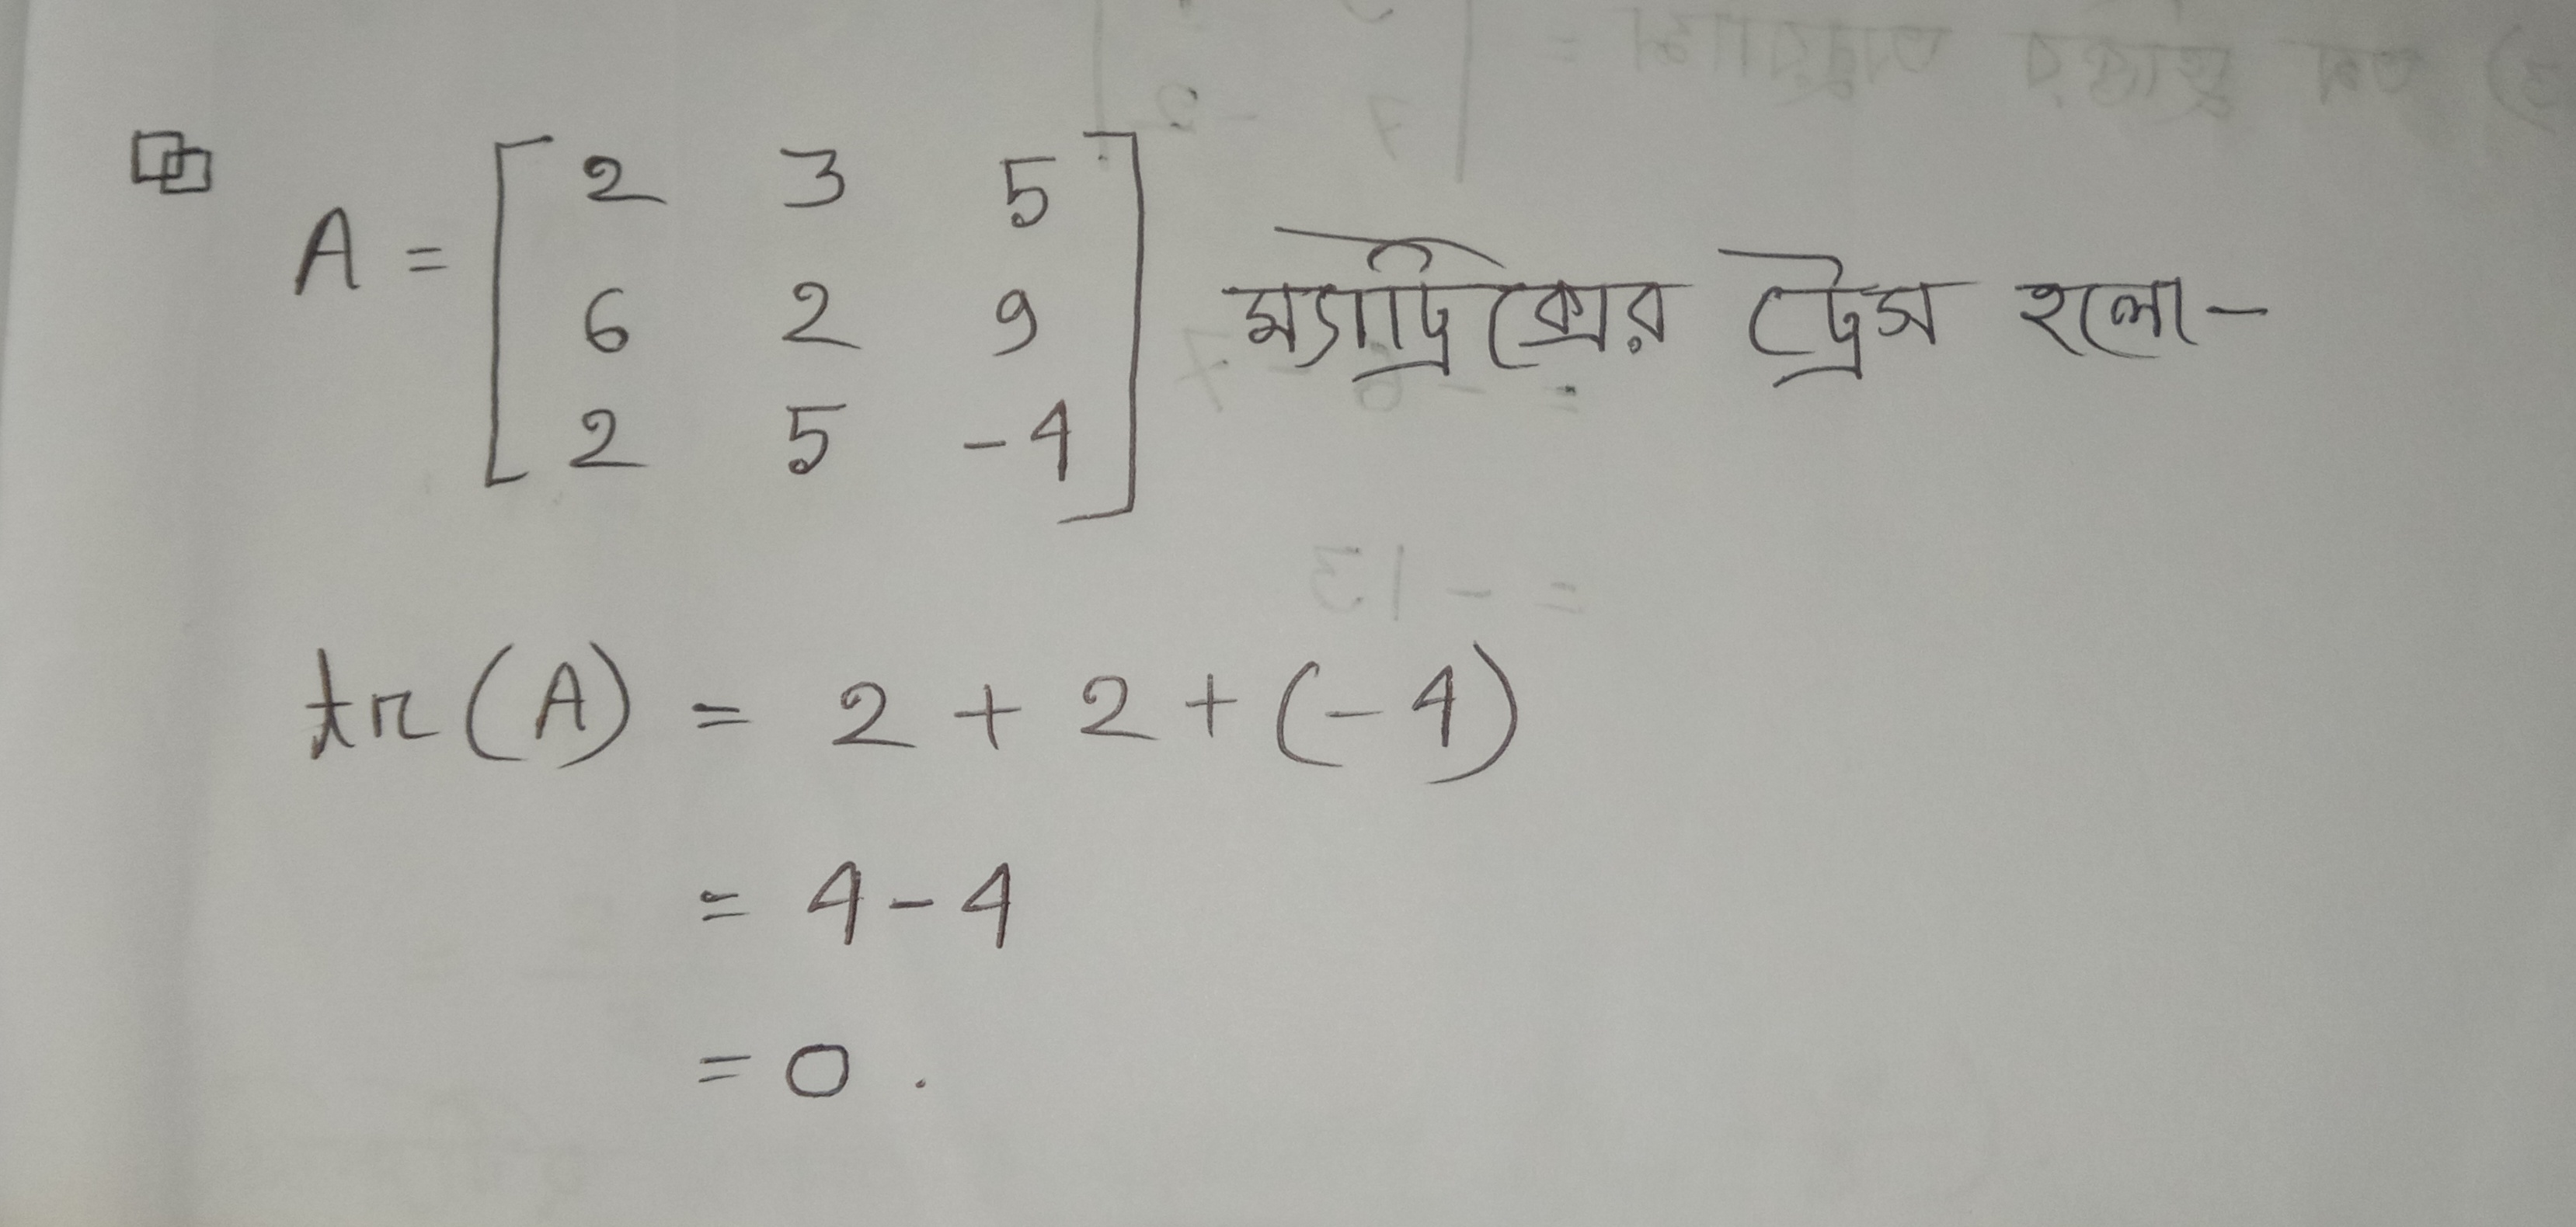 A = [ 2 3 5
6 2 9
2 5 -4 ] ম্যাট্রিক্সের ট্রেস হলো-
tr(A) = 2 + 2 + (-4)
= 4 - 4
= 0 .